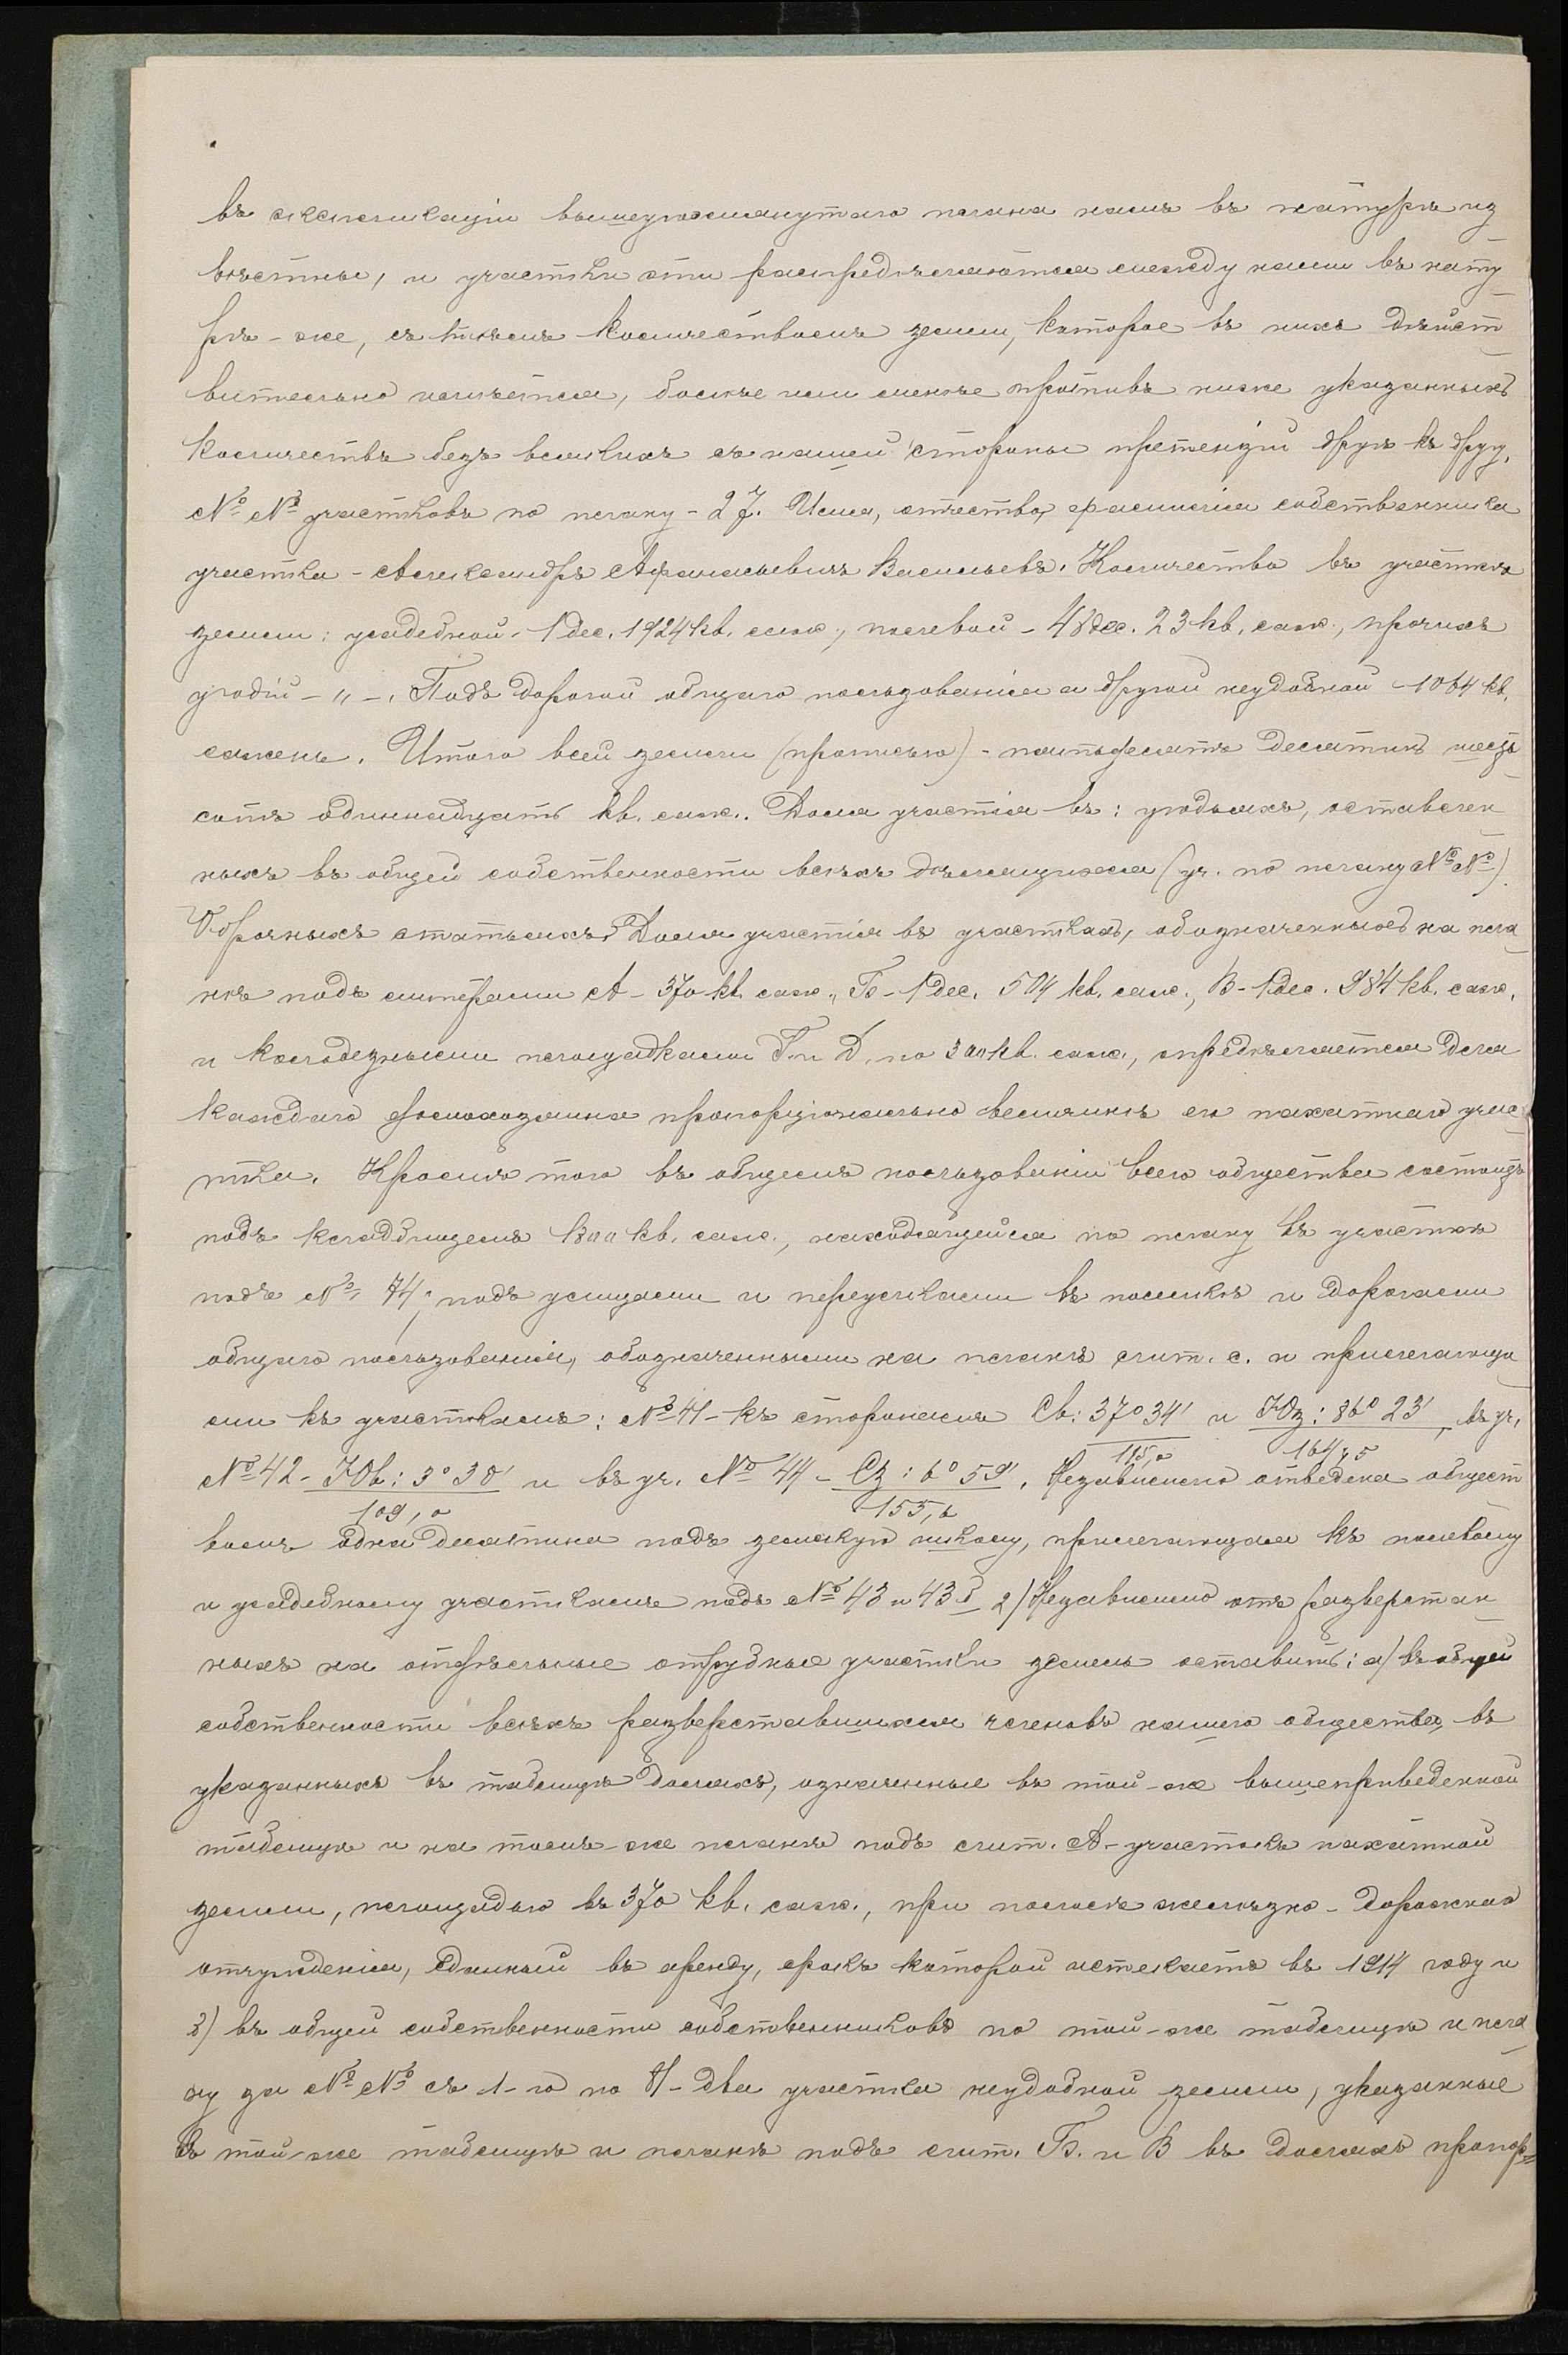 въ экспликаціи вышеупомянутаго плана намъ въ натурѣ из
вѣстны, и участки эти распредѣляются между нами въ нату
рѣ-же, съ тѣмъ количествомъ земли, которое въ нихъ дѣйст
вительно имѣется, болѣе или менѣе противъ ниже указанныхъ
количествъ безъ всякихъ съ нашей стороны претензій другъ къ другу.
№ № участковъ по плану - 27. Имя, отчество, фамилія собственника
участка - Александръ Афанасьевичъ Васильевъ. Количество въ участкѣ
земли: усадебной - 1 дес. 1924 кв. саж., полевой - 48 дес. 23 кв. саж., прочихъ
угодій - „ -. Подъ дорогой общаго пользованія и другой неудобной - 1064 кв.
сажень. Итого всей земли (прописью) - пятьдесятъ десятинъ шесть
сотъ одиннадцать кв. саж.. Доля участія въ: угодьяхъ, оставлен
ныхъ въ общей собственности всѣхъ дѣлящихся (уч. по плану № №).
Оброчныхъ статьяхъ. Доля участія въ участкахъ, обозначенныхъ на пла
нѣ подъ литерами А - 370 кв. саж., Б - 1 дес. 504 кв. саж., В - 1 дес. 984 кв. саж.
и колодезными площадками Г. и Д. по 300 кв. саж., опредѣляется для
каждаго домохозяина пропорціонально величинѣ его пахатнаго учас
тка. Кромѣ того въ общемъ пользованіи всего общества состоитъ
подъ кладбищемъ 1300 кв. саж., находящейся по плану въ участкѣ
подъ № 74; подъ улицами и переулками въ поселкѣ и дорогами
общаго пользованія, обозначенными на планѣ лит. а. и прилегающи
ми къ участкамъ: № 41 - къ сторонамъ Св: 37° 34' и Юз: 86° 23', въ уч.
115,0 164,5
№ 42 - Юв: 3° 30' и въ уч. № 44 - Сз: 6° 59'. Независимо отведена общест
109,0 155,6
вомъ одна десятина подъ земскую школу, прилегающая къ полевому
и усадебному участкамъ подъ № 43 и 43 I 2) Независимо отъ разверстан
ныхъ на отдѣльные отрубные участки земель оставить: а) въ общей
собственности всѣхъ разверставшихся членовъ нашего общества, въ
указанныхъ въ таблицѣ доляхъ, означенные въ той-же вышеприведенной
таблицѣ и на томъ-же планѣ подъ лит. А - участокъ пахатной
земли, площадью въ 370 кв. саж., при полосѣ желѣзно-дорожнаго
отчужденія, сданный въ аренду, срокъ которой истекаетъ въ 1914 году и
б) въ общей собственности собственниковъ по той-же таблицѣ и пла
ну за № № съ 1-го по - два участка неудобной земли, указанные
въ той-же таблицѣ и планѣ подъ лит. Б. и В въ доляхъ пропор=